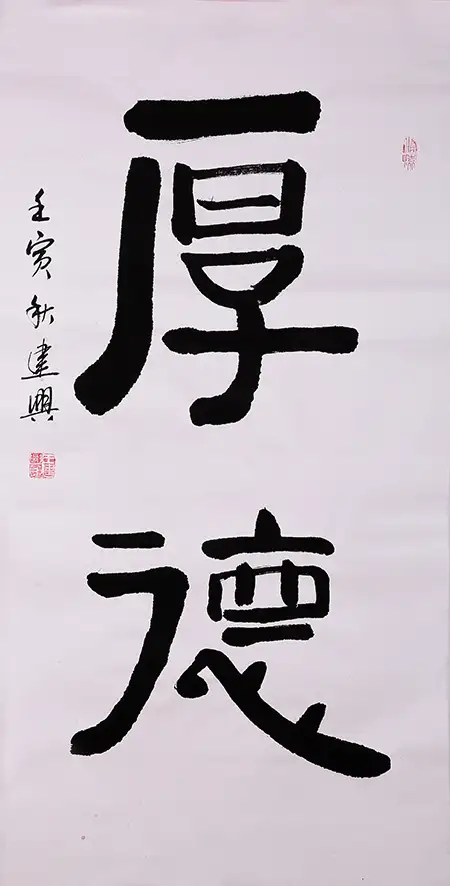 厚德
壬寅秋建興